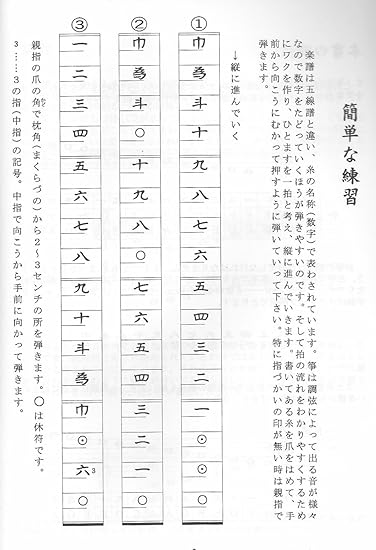 簡単な練習
楽譜は五線譜と違い、糸の名称(数字)で表わされています。箏は調弦によって出る音が様々
なので数字をたどっていくほうが弾きやすいのです。そして拍の流れをわかりやすくするため
にワクを作り、ひとますを一拍と考え、縦に進んでいきます。書いてある糸を爪をはめて、手
前から向こうにむかって押すように弾いていって下さい。特に指づかいの印が無い時は親指で
弾きます。
↓縦に進んでいく
① 巾 為 斗 十 九 八 七 六 五 四 三 二 一 ⊙ ⊙ ○
② 巾 為 斗 ○ 十 九 八 ○ 七 六 五 四 三 二 一 ○
③ 一 二 三 四 五 六 七 八 九 十 斗 為 巾 ⊙ 六3 ○
親指の爪の角で枕角(まくらづの)から2〜3センチの所を弾きます。○は休符です。
3……3の指(中指)の記号。中指で向こうから手前に向かって弾きます。